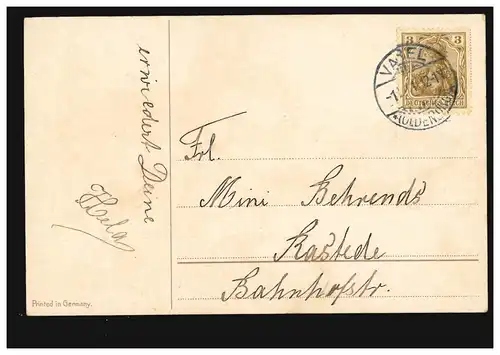 erwiedert Deine
Hela
Frl.
Mini Behrends
Rastede
Bahnhofstr.
3 3
DEUTSCHES REICH
VAREL
(OLDENBURG)
Printed in Germany.